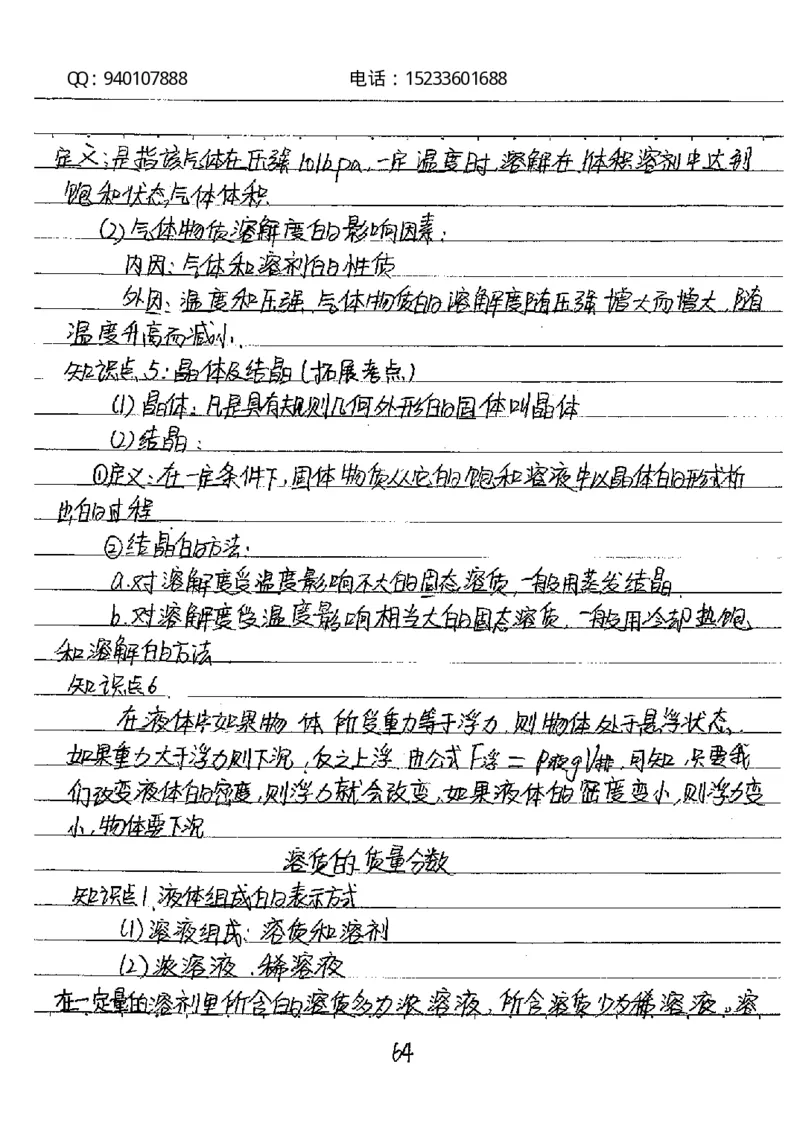 QQ：940107888 电话：15233601688
定义：是指该气体在压强101kpa，一定温度时，溶解在1体积溶剂中达到
饱和状态气体体积
(2)气体物质溶解度的影响因素：
内因：气体和溶剂的性质
外因：温度和压强，气体物质的溶解度随压强增大而增大，随
温度升高而减小.
知识点5：晶体及结晶（拓展考点）
(1)晶体：凡是具有规则几何外形的固体叫晶体
(2)结晶：
①定义：在一定条件下，固体物质从它的饱和溶液中以晶体的形式析
出的过程
②结晶的方法：
a.对溶解度受温度影响不大的固态溶质，一般用蒸发结晶
b.对溶解度受温度影响相当大的固态溶质，一般用冷却热饱
和溶解的方法
知识点6
在液体中如果物体所受重力等于浮力，则物体处于悬浮状态，
如果重力大于浮力则下沉，反之上浮 由公式F浮=ρ液gV排，可知，只要我
们改变液体的密度，则浮力就会改变，如果液体的密度变小，则浮力变
小，物体要下沉
溶质的质量分数
知识点1、液体组成的表示方式
(1)溶液组成：溶质和溶剂
(2)浓溶液、稀溶液
在一定量的溶剂里所含的溶质多为浓溶液，所含溶质少为稀溶液。溶
64